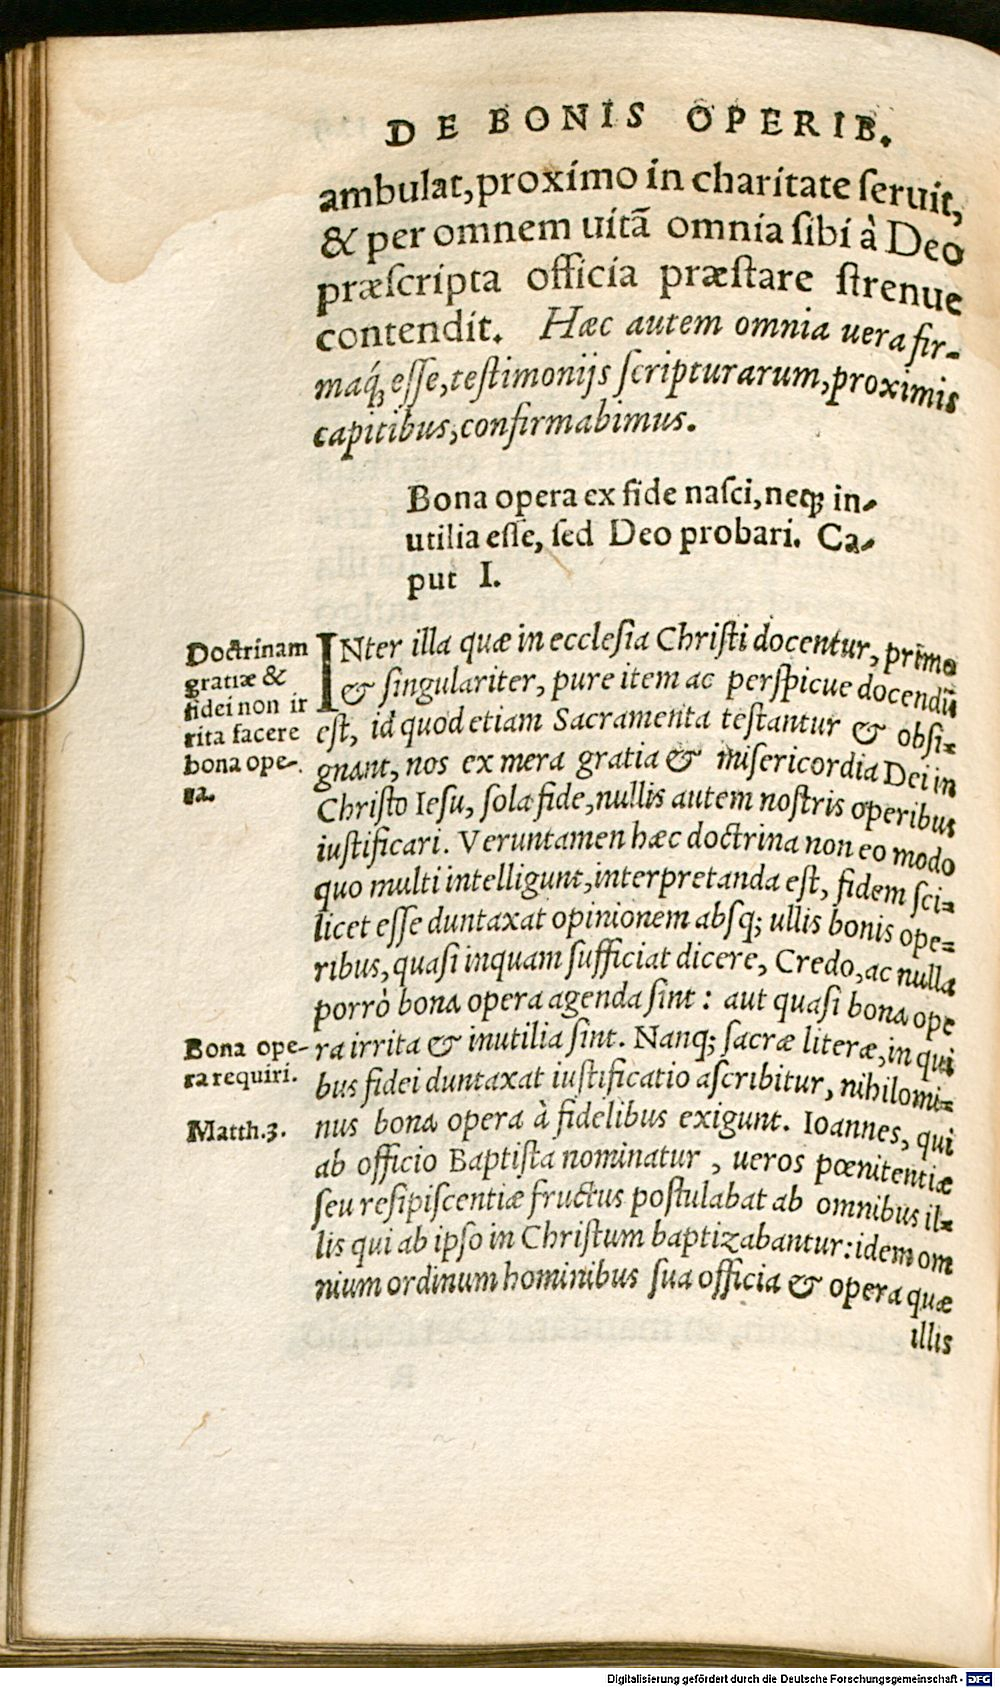 DE BONIS OPERIB.
ambulat, proximo in charitate ſeruit,
& per omnem uitā omnia ſibi à Deo
præſcripta officia præſtare ſtrenue
contendit. Hæc autem omnia uera fir-
maq́ꝫ eſſe, teſtimonijs ſcripturarum, proximis
capitibus, confirmabimus.
Bona opera ex fide naſci, neqꝫ in-
utilia eſſe, ſed Deo probari. Ca-
put I.
Doctrinam
gratiæ &
fidei non ir
rita facere
bona ope-
ra.
INter illa quæ in eccleſia Chriſti docentur, primo
& ſingulariter, pure item ac perſpicue docendū
eſt, id quod etiam Sacramenta teſtantur & obſi-
gnant, nos ex mera gratia & miſericordia Dei in
Chriſto Ieſu, ſola fide, nullis autem noſtris operibus
iuſtificari. Veruntamen hæc doctrina non eo modo
quo multi intelligunt, interpretanda eſt, fidem ſci-
licet eſſe duntaxat opinionem abſq; ullis bonis ope-
ribus, quaſi inquam ſufficiat dicere, Credo, ac nulla
porrò bona opera agenda ſint: aut quaſi bona ope
ra irrita & inutilia ſint. Nanq; ſacræ literæ, in qui
bus fidei duntaxat iuſtificatio aſcribitur, nihilomi-
nus bona opera à fidelibus exigunt. Ioannes, qui
ab officio Baptiſta nominatur, ueros pœnitentiæ
ſeu reſipiſcentiæ fructus poſtulabat ab omnibus il-
lis qui ab ipſo in Chriſtum baptizabantur: idem om
nium ordinum hominibus ſua officia & opera quæ
illis
Bona ope-
ra requiri.
Matth.3.
Digitalisierung gefördert durch die Deutsche Forschungsgemeinschaft - DFG